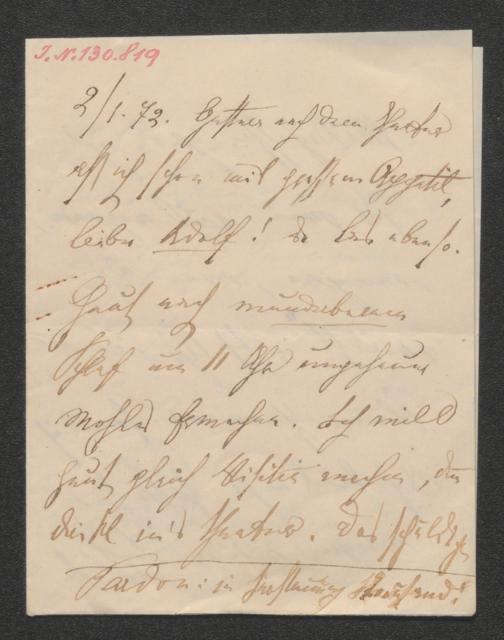 I. N. 130.819
2/1. 72. Gestern nach dem Theater
aß ich schon mit großem Appetit,
lieber Adolf! Du bes ebenso.
Heut nach wunderbarem
Schlaf um 11 Uhr ungeheuer
wohles Erwachen. Ich will
heut gleich Visite machen, dan
in's Theater. Das
Pardon: in